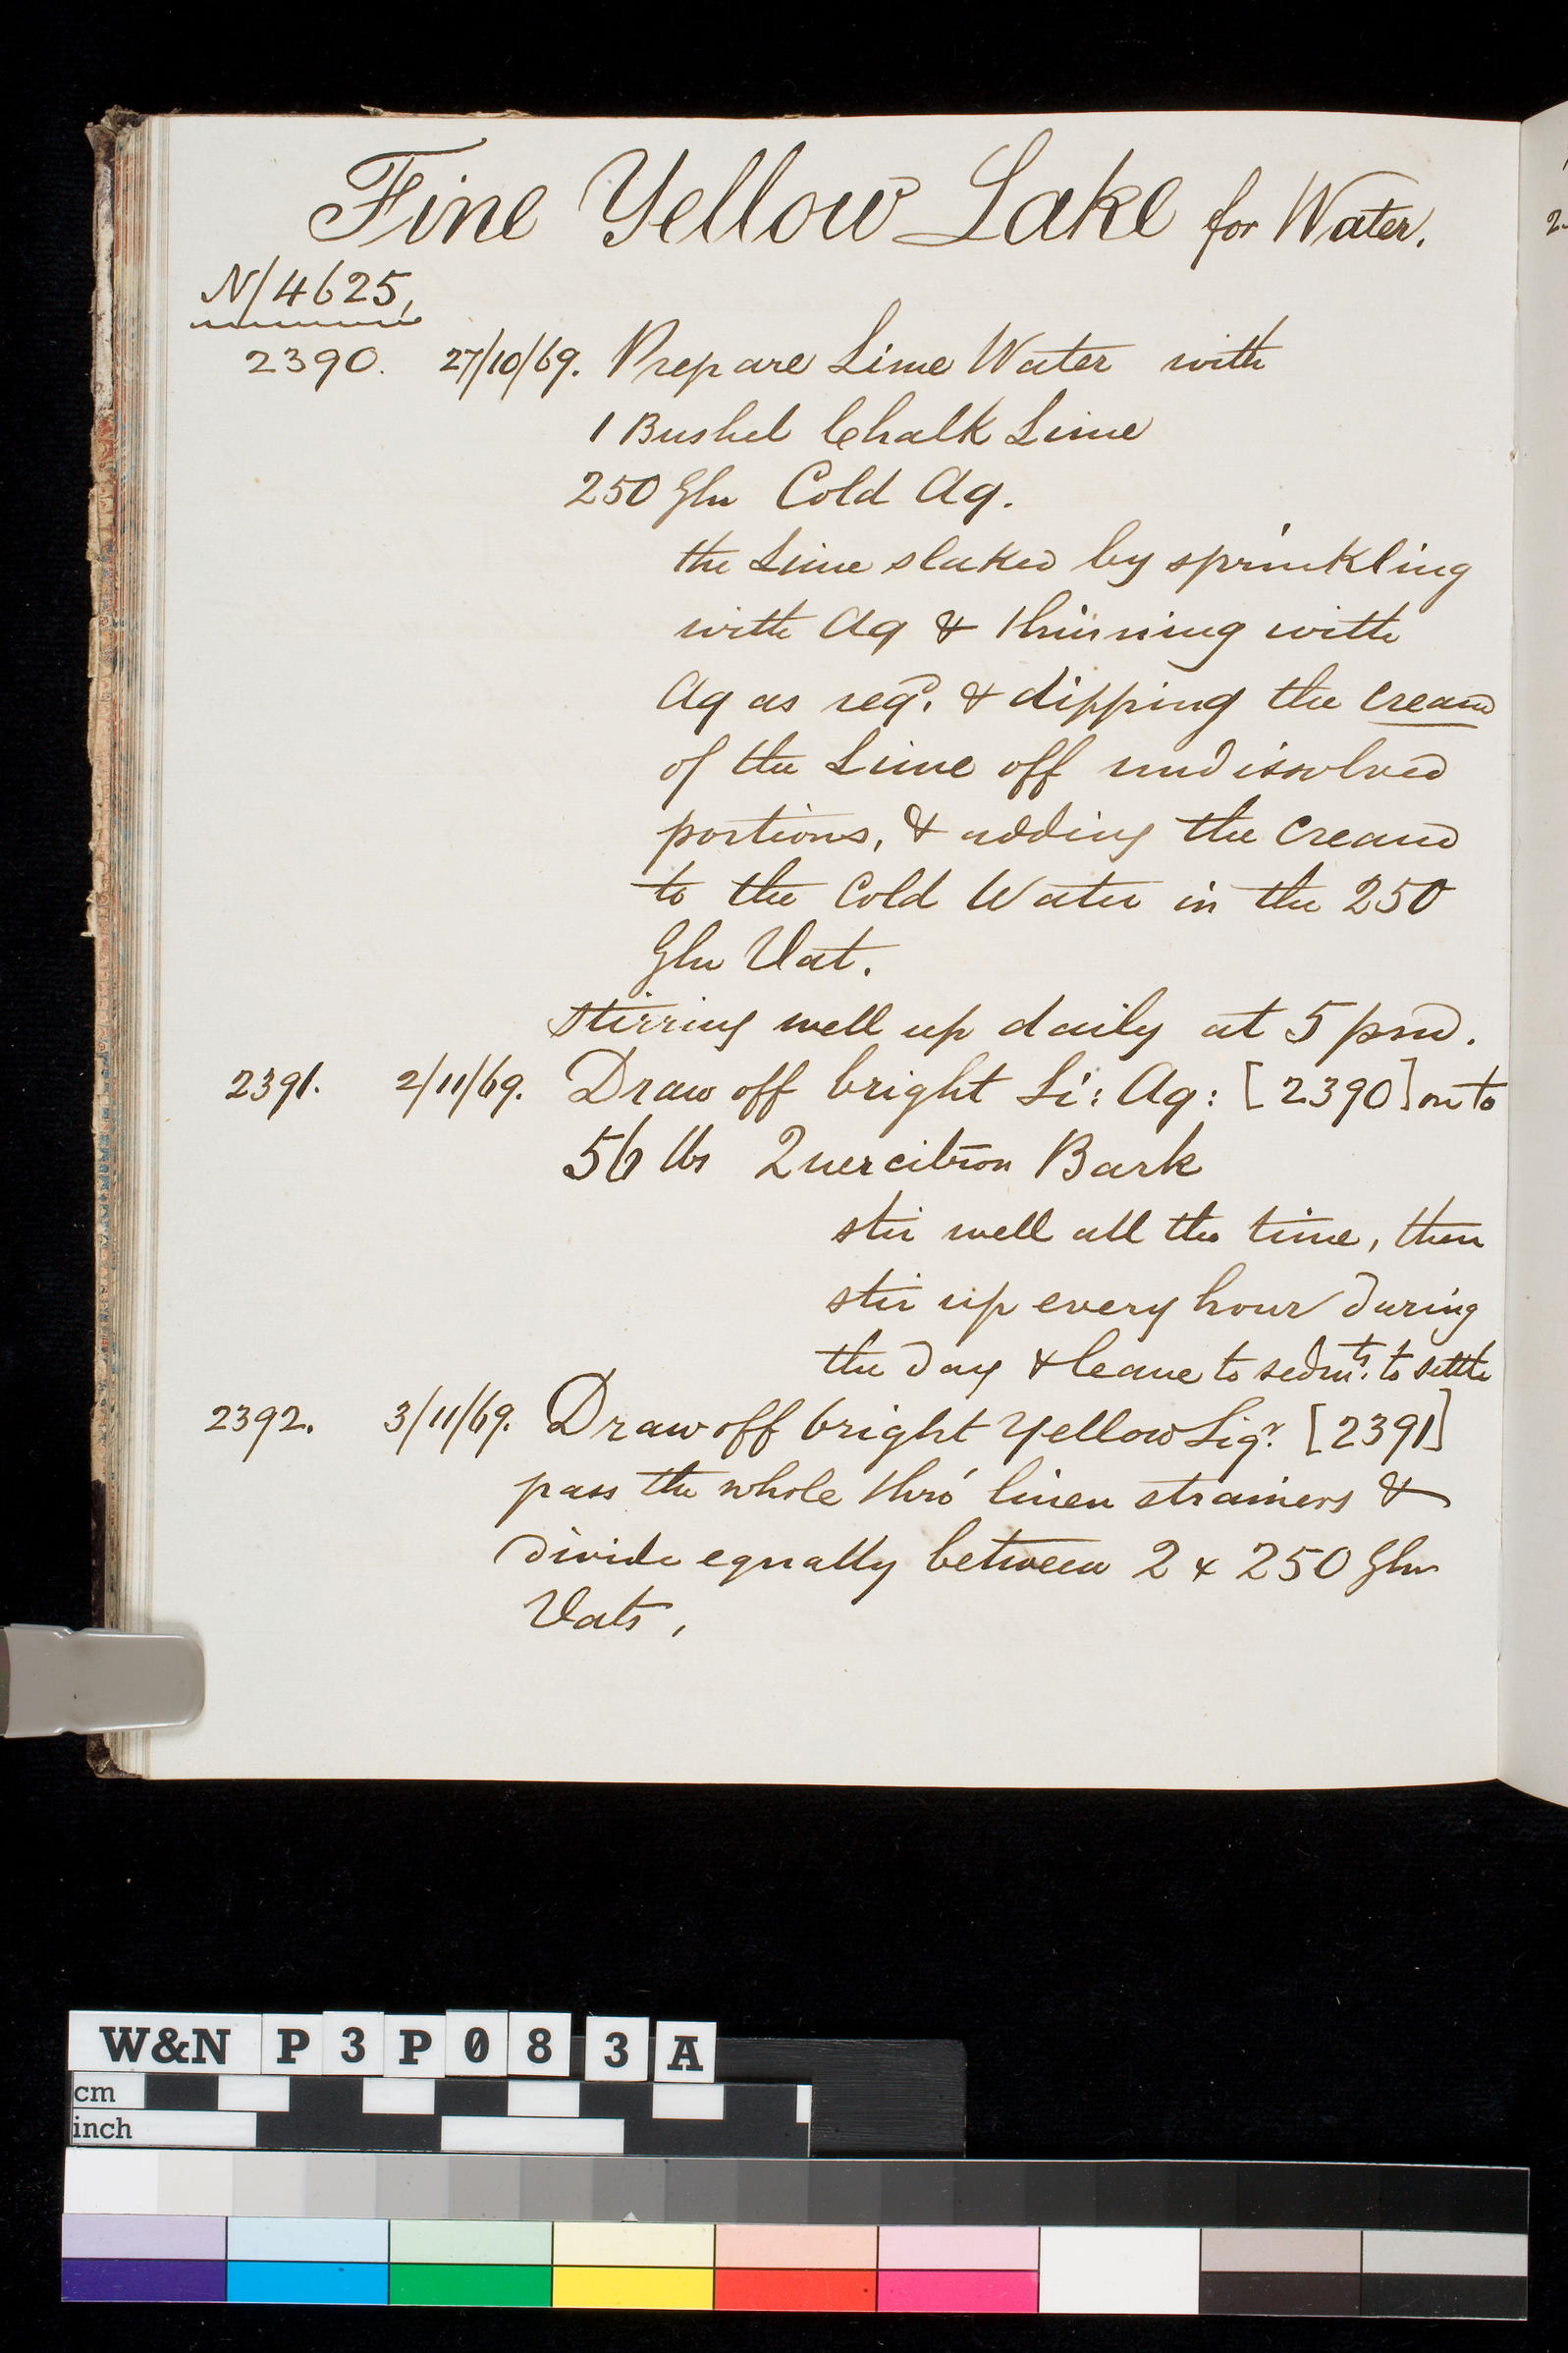 Fine Yellow Lake for Water.
N/4625,
2390. 27/10/69. Prepare Lime Water with
1 Bushel Chalk Lime
250 Gln Cold Aq.
the Lime slaked by sprinkling
with Aq & thinning with
Aq as reqd. & dipping the cream
of the Lime off undissolved
portions, & adding the cream
to the Cold Water in the 250
Gln Vat.
stirring well up daily at 5 pm.
2391. 2/11/69. Draw off bright Li: Aq: [2390] on to
56 lbs Quercitron Bark
stir well all the time, then
stir up every hour during
the day & leave to sedmts. to settle
2392. 3/11/69. Draw off bright Yellow Liqr. [2391]
pass the whole thro' linen strainers &
divide equally between 2 x 250 Gln
Vats,
2.
W&N P3P083A
cm
inch